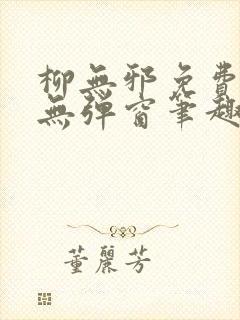 柳無邪免費
無彈窗筆趣
董麗芳